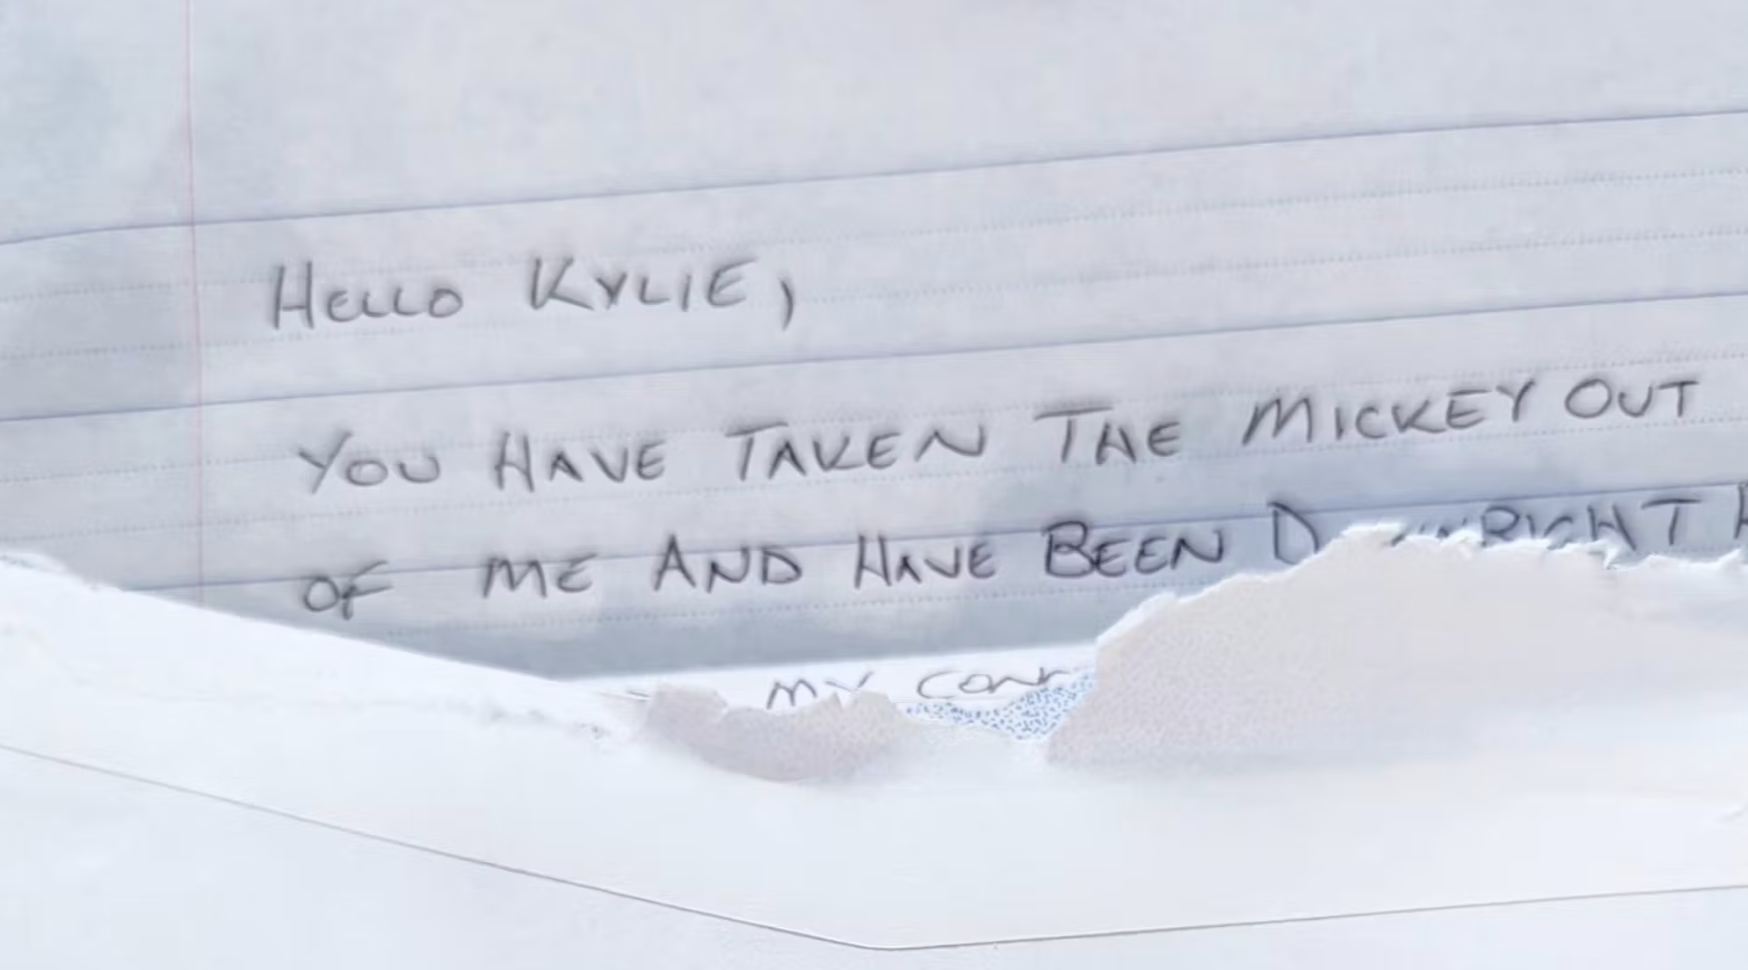 Hello KYLIE,
YOU HAVE TAKEN THE MICKEY OUT
OF ME AND HAVE BEEN
MY